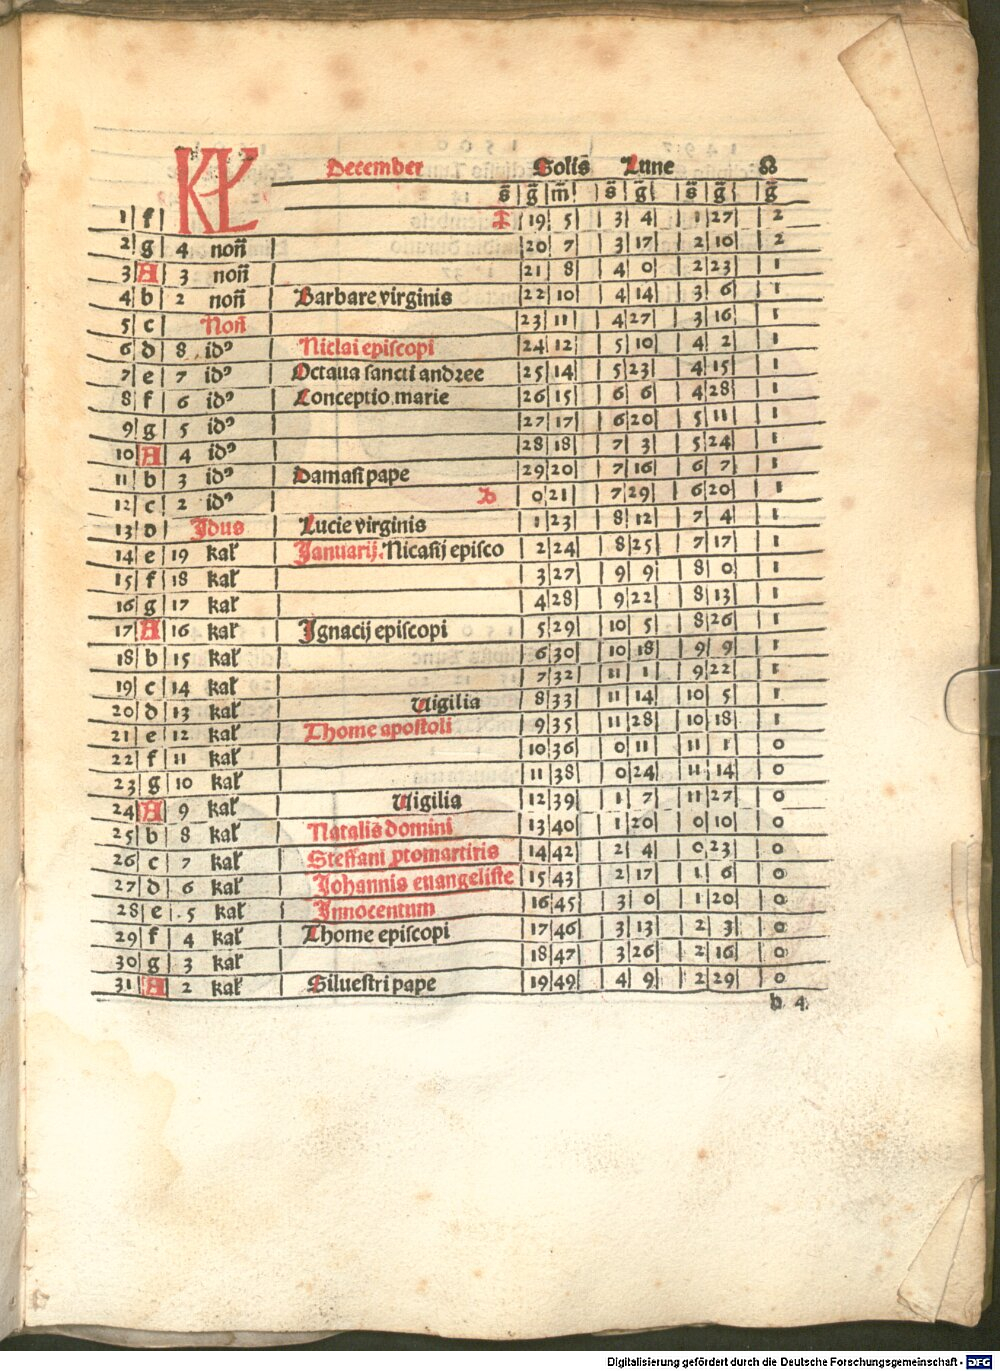 KL December Solis Lune ☊
s̄ ḡ m̄ s̄ ḡ s̄ ḡ ḡ
1 f ♐ 19 5 3 4 1 27 2
2 g 4 non̄ 20 7 3 17 2 10 2
3 A 3 non̄ 21 8 4 0 2 23 1
4 b 2 non̄ Barbare virginis 22 10 4 14 3 6 1
5 c Non̄ 23 11 4 27 3 16 1
6 d 8 idꝰ Niclai episcopi 24 12 5 10 4 2 1
7 e 7 idꝰ Octaua sancti andree 25 14 5 23 4 15 1
8 f 6 idꝰ Conceptio marie 26 15 6 6 4 28 1
9 g 5 idꝰ 27 17 6 20 5 11 1
10 A 4 idꝰ 28 18 7 3 5 24 1
11 b 3 idꝰ Damasi pape 29 20 7 16 6 7 1
12 c 2 idꝰ ♑ 0 21 7 29 6 20 1
13 d Idus Lucie virginis 1 23 8 12 7 4 1
14 e 19 kal Januarij. Nicasij episco 2 24 8 25 7 17 1
15 f 18 kal 3 27 9 9 8 0 1
16 g 17 kal 4 28 9 22 8 13 1
17 A 16 kal Ignacij episcopi 5 29 10 5 8 26 1
18 b 15 kal 6 30 10 18 9 9 1
19 c 14 kal 7 32 11 1 9 22 1
20 d 13 kal Uigilia 8 33 11 14 10 5 1
21 e 12 kal Thome apostoli 9 35 11 28 10 18 1
22 f 11 kal 10 36 0 11 11 1 0
23 g 10 kal 11 38 0 24 11 14 0
24 A 9 kal Uigilia 12 39 1 7 11 27 0
25 b 8 kal Natalis domini 13 40 1 20 0 10 0
26 c 7 kal Steffani ptomartiris 14 42 2 4 0 23 0
27 d 6 kal Johannis euangeliste 15 43 2 17 1 6 0
28 e 5 kal Innocentum 16 45 3 0 1 20 0
29 f 4 kal Thome episcopi 17 46 3 13 2 3 0
30 g 3 kal 18 47 3 26 2 16 0
31 A 2 kal Siluestri pape 19 49 4 9 2 29 0
b 4
Digitalisierung gefördert durch die Deutsche Forschungsgemeinschaft - DFG